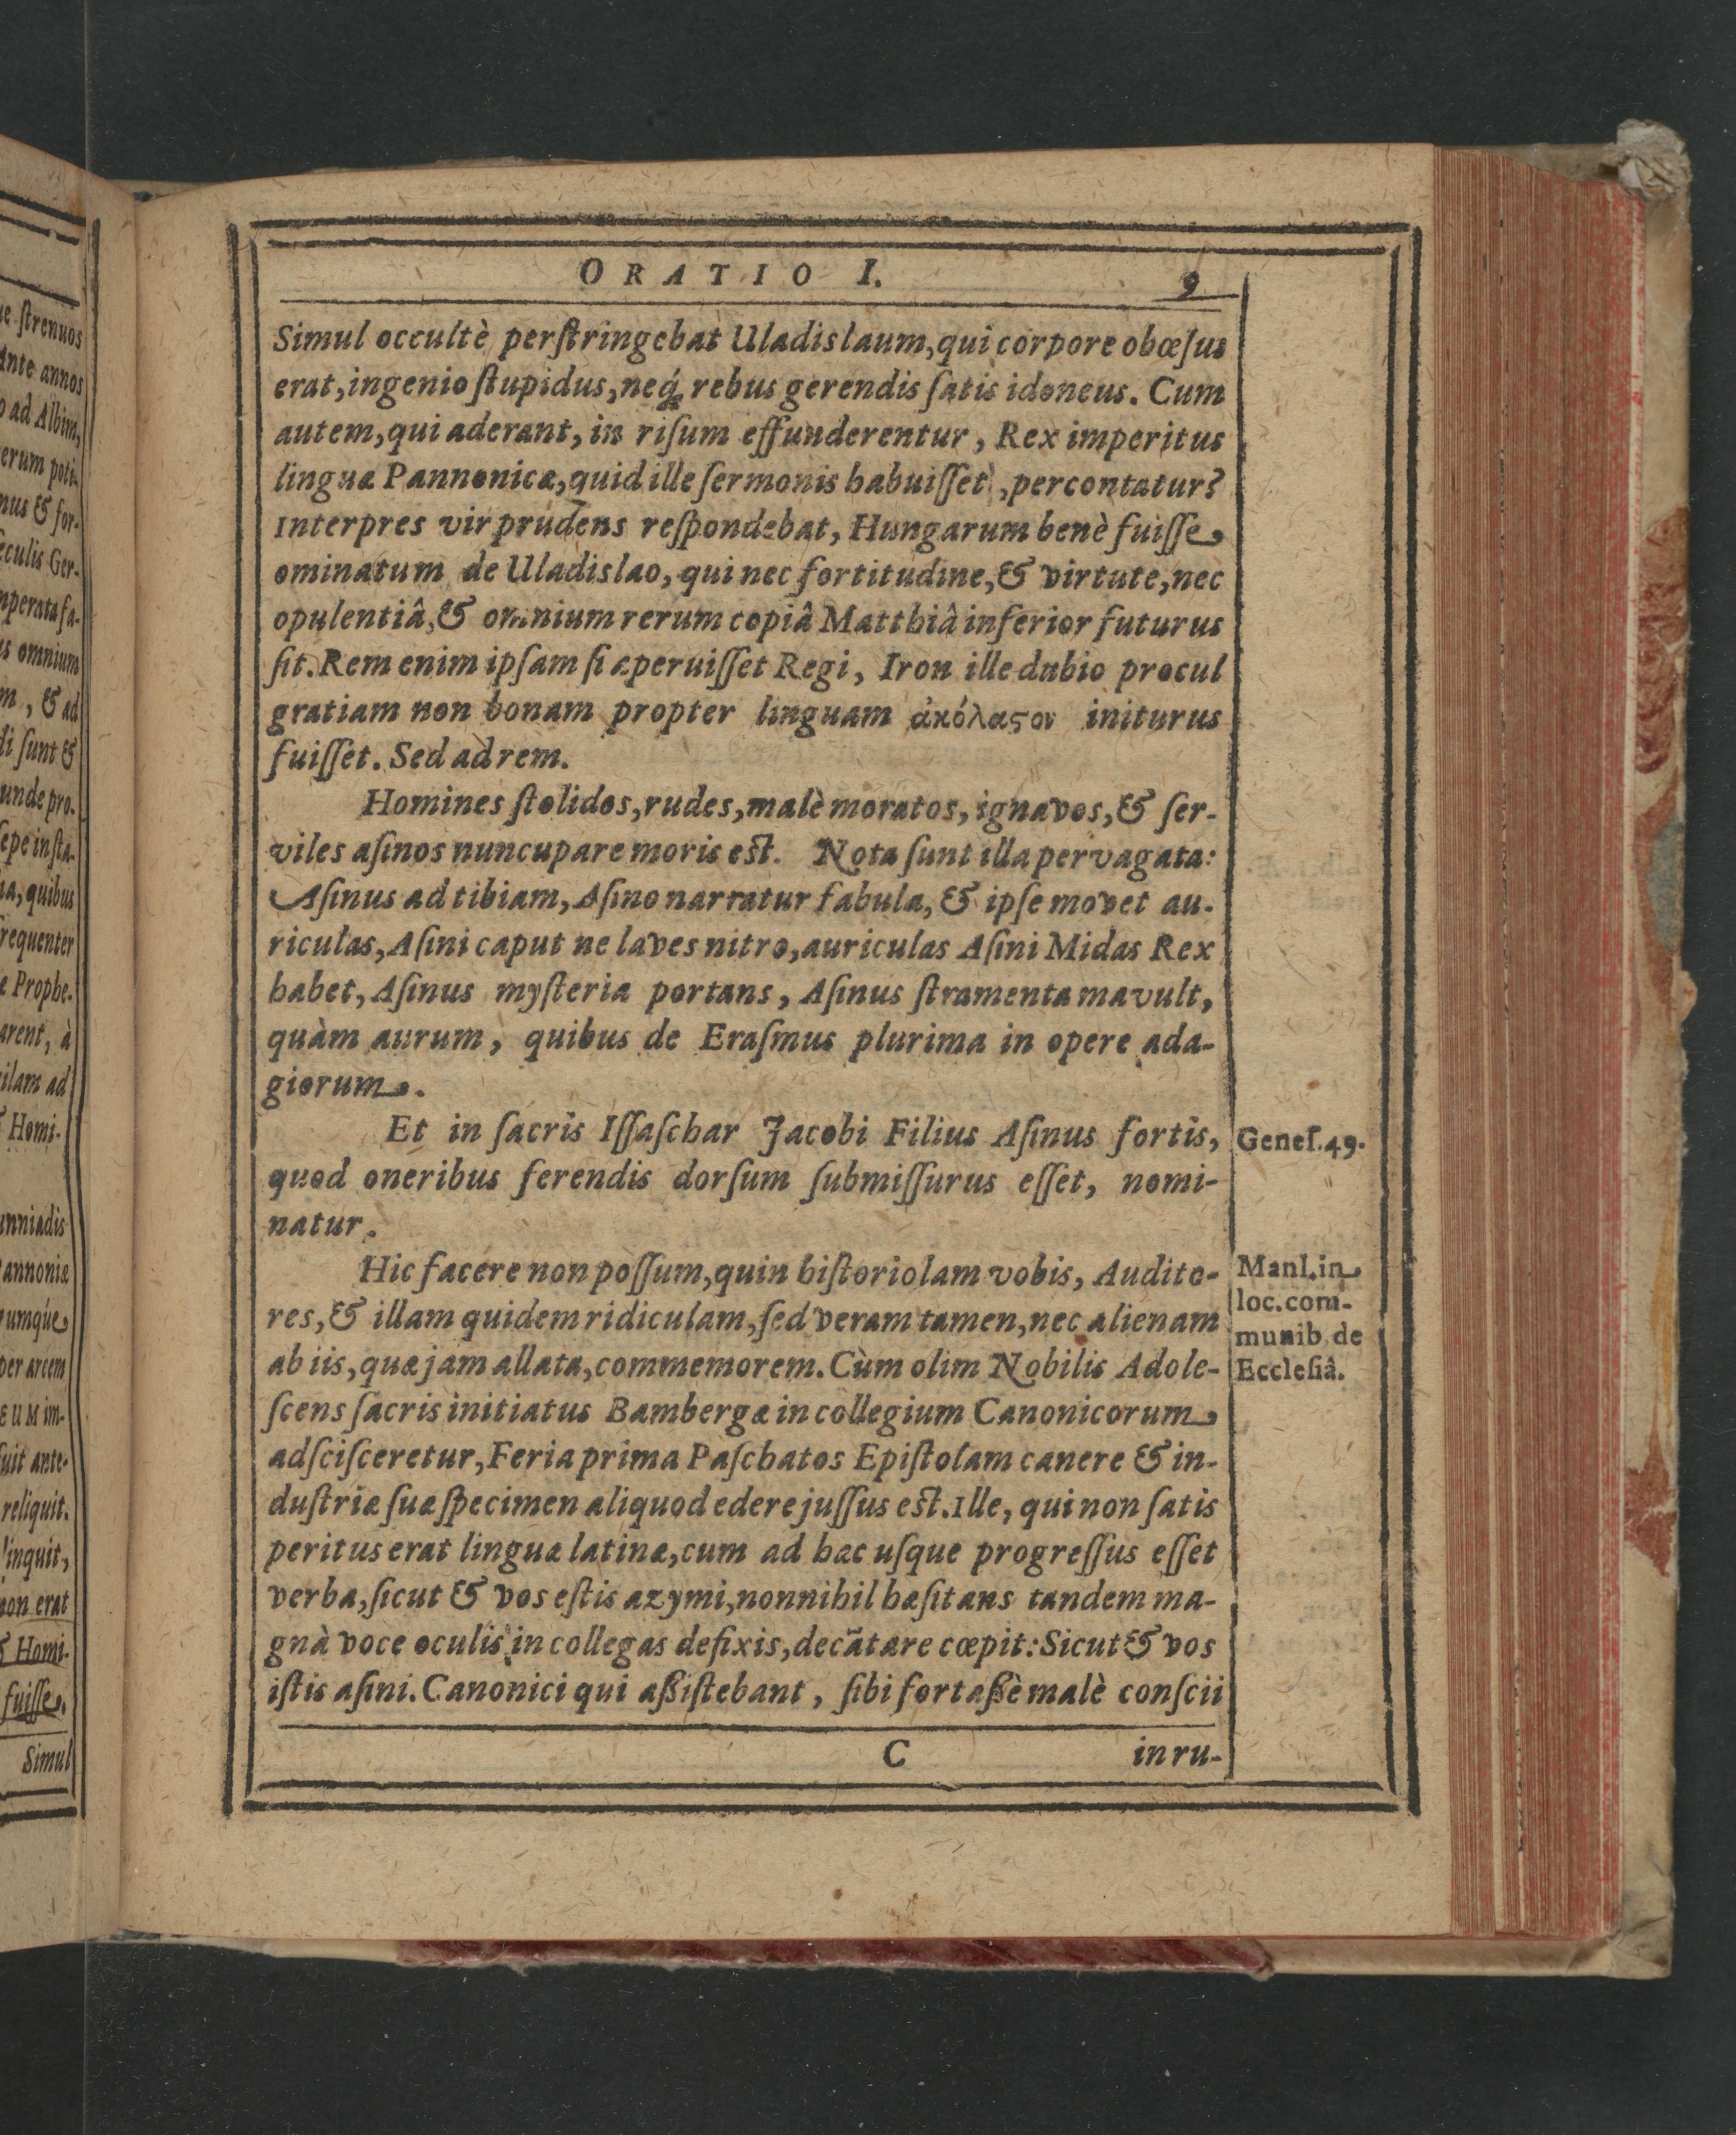 ORATIO I. 9
Simul occultè perſtringebat Uladislaum, qui corpore obœſus
erat, ingenio ſtupidus, neq́; rebus gerendis ſatis idoneus. Cum
autem, qui aderant, in riſum effunderentur, Rex imperitus
linguæ Pannonicæ, quid ille ſermonis habuiſſet, percontatur?
Interpres vir prudens reſpondebat, Hungarum benè fuiſſe
ominatum de Uladislao, qui nec fortitudine, & virtute, nec
opulentiâ, & omnium rerum copiâ Matthiâ inferior futurus
ſit. Rem enim ipſam ſi aperuiſſet Regi, Iron ille dubio procul
gratiam non bonam propter linguam ἀκόλαςον initurus
fuiſſet. Sed ad rem.
Homines ſtolidos, rudes, malè moratos, ignavos, & ſer-
viles aſinos nuncupare moris eſt. Nota ſunt illa pervagata:
Aſinus ad tibiam, Aſino narratur fabula, & ipſe movet au-
riculas, Aſini caput ne laves nitro, auriculas Aſini Midas Rex
habet, Aſinus myſteria portans, Aſinus ſtramenta mavult,
quàm aurum, quibus de Eraſmus plurima in opere ada-
giorum.
Et in ſacris Iſſaſchar Jacobi Filius Aſinus fortis,
Geneſ. 49.
quod oneribus ferendis dorſum ſubmiſſurus eſſet, nomi-
natur.
Hic facere non poſſum, quin hiſtoriolam vobis, Audito-
res, & illam quidem ridiculam, ſed veram tamen, nec alienam
ab iis, quæ jam allata, commemorem. Cùm olim Nobilis Adole-
Manl. in
loc. com-
munib. de
Eccleſiâ.
ſcens ſacris initiatus Bambergæ in collegium Canonicorum
adſciſceretur, Feria prima Paſchatos Epiſtolam canere & in-
duſtriæ ſuæ ſpecimen aliquod edere juſſus eſt. Ille, qui non ſatis
peritus erat linguæ latinæ, cum ad hæc uſque progreſſus eſſet
verba, ſicut & vos eſtis azymi, nonnihil hæſitans tandem ma-
gnà voce oculis in collegas defixis, decãtare cœpit: Sicut & vos
iſtis aſini. Canonici qui aßiſtebant, ſibi fortaßè malè conſcii
C inru-